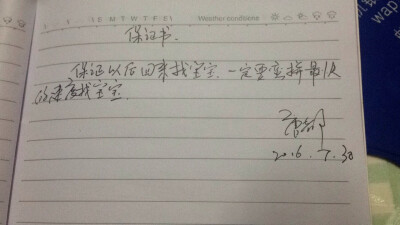 E M T W T F S Weather conditions
保证书.
保证以后回来找宝宝.一定要查拼最快
的速度找宝宝
2016.7.30
wap